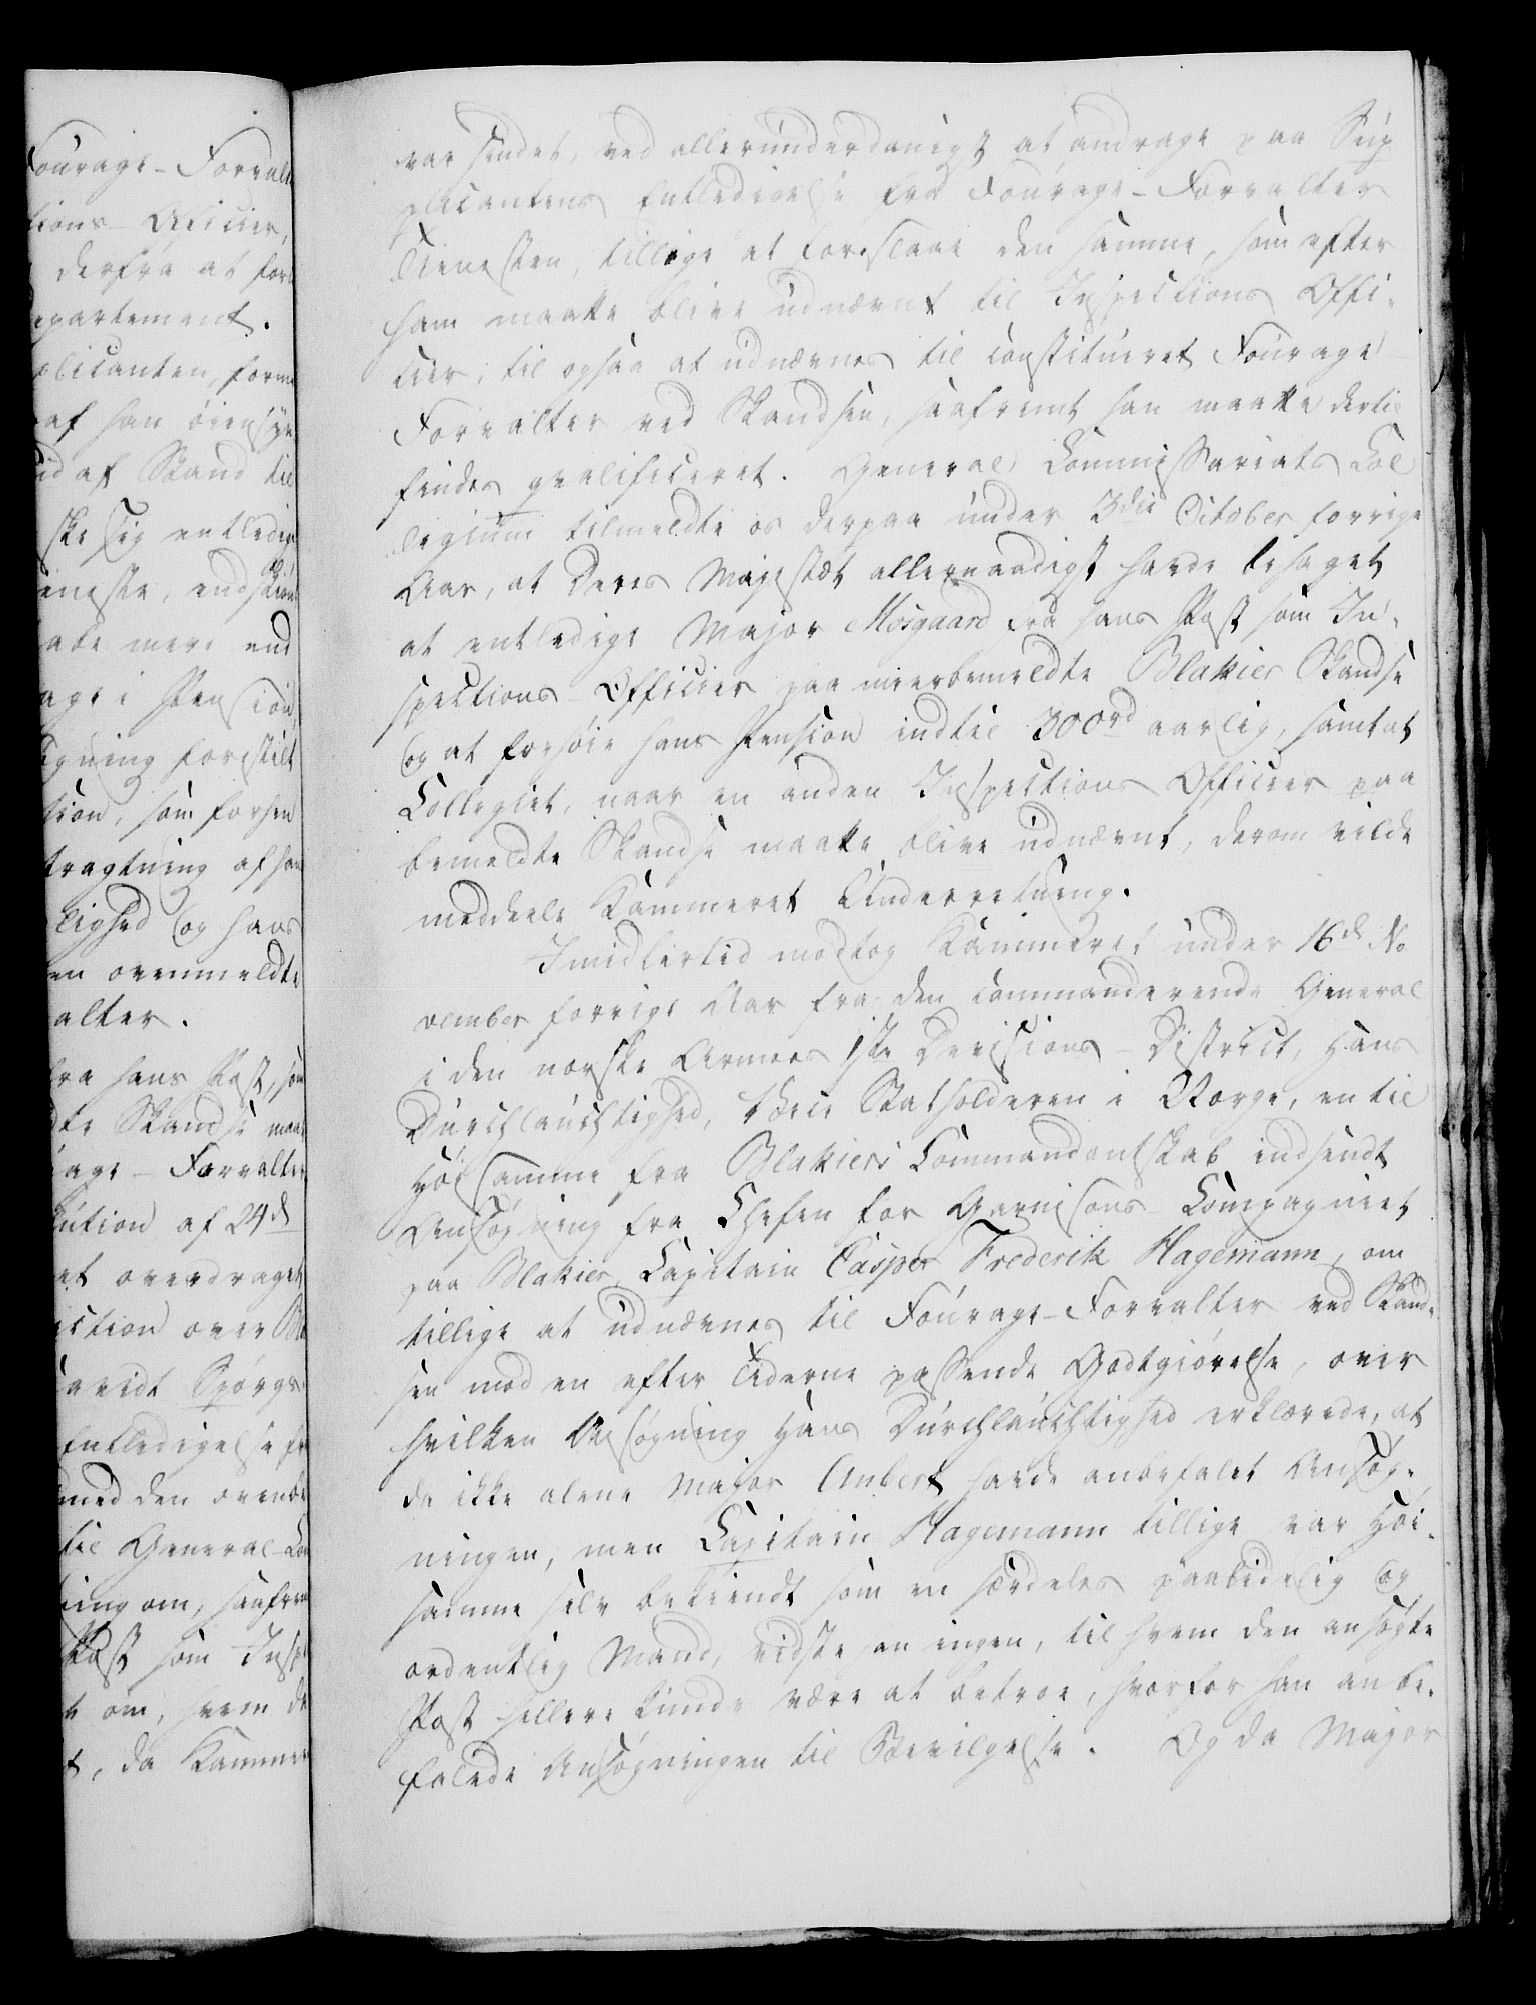 Fourage-Forvalt
tions-Officier,
derfra at for
epartement.
plicanten, forme
af han øiensyn
id af Stand til
ske sig entledige
ieneste, endskiøn
abe mere end
age i Pension
igning forestilt
sion, som forhen
tragtning af han
lighed og hans
en ovenmeldte
alter.
fra hans Post, som
dte Skandse maa
age-Forvalter
lution af 24d
at overdraget
ction over Bl
avidt Spørgs
Entledigelse fr
med den ovenbe
til General-Com
ning om, saafrem
Post som Insp
e om, hvem de
t, da Kammer
var sindet, ved allerunderdanigst at andrage paa Sup
plicantens Entledigelse fra Fourage-Forvalter
Tienesten, tillige at foreslaae den samme, som efter
ham maatte blive udnævnt til Inspections Offi-
cier, til ogsaa at udnævnes til constitueret Fourage-
Forvalter ved Skandsen, saafremt han maatte dertil
findes qvalificeret. General Commissariats Col
legium tilmeldte os derpaa under 3die October forrige
Aar, at Deres Majestæt allernaadigst havde behaget
at entledige Major Mosgaard fra hans Post som In-
spections-Officier paa meerbemeldte Blakier Skandse
og at forhøie hans Pension indtil 300rd aarlig, samt at
Collegiet, naar en anden Inspections Officier paa
bemeldte Skandse maatte blive udnævnt, derom vilde
meddeele Kammeret Underretning.
Imidlertid modtog Kammeret under 16d No
vember forrige Aar fra den commanderende General
i den norske Armees 1ste Divisions-District, Hans
Durchlauchtighed, Vice Statholderen i Norge, en til
Høisamme fra Blakiers Commandantskab indsendt
Ansøgning fra Chefen for Garnisons-Compagniet
paa Blakier, Capitain Casper Frederik Hagemann, om
tillige at udnævnes til Fourage-Forvalter ved Skand-
sen mod en efter Tiderne passende Godtgiørelse, over
hvilken Ansøgning Hans Durchlauchtighed erklærede, at
da ikke alene Major Aubert havde anbefalet Ansøg-
ningen, men Capitain Hagemann tillige var Høi-
samme selv bekiendt som en særdeles paalidelig og
ordentlig Mand, vidste han ingen, til hvem den ansøgte
Post hellere kunde være at betroe, hvorfor han anbe-
falede Ansøgningen til Bevilgelse. Og da Major